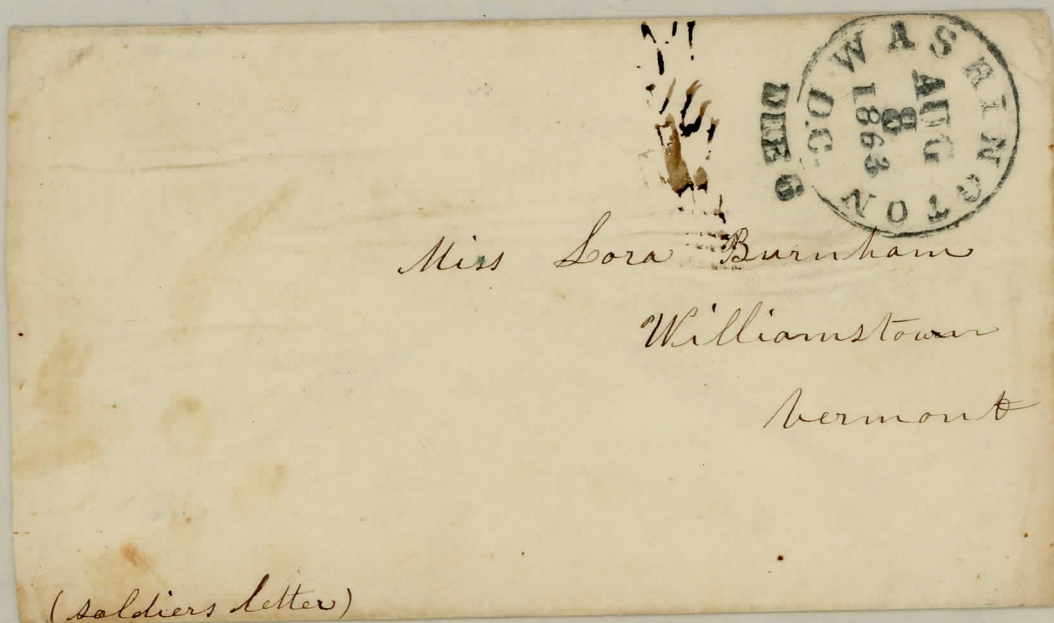 WASHINGTON
D.C.
AUG
8
1863
DUE 6
Miss Lora Burnham
Williamstown
Vermont
(soldiers letter)